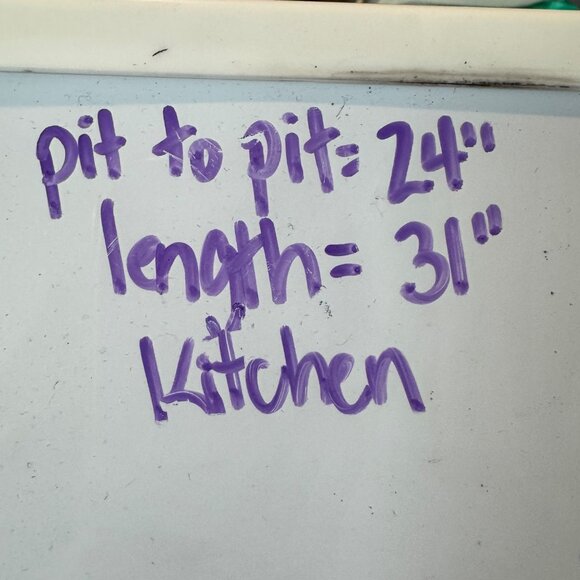 pit to pit= 24"
length= 31"
Kitchen